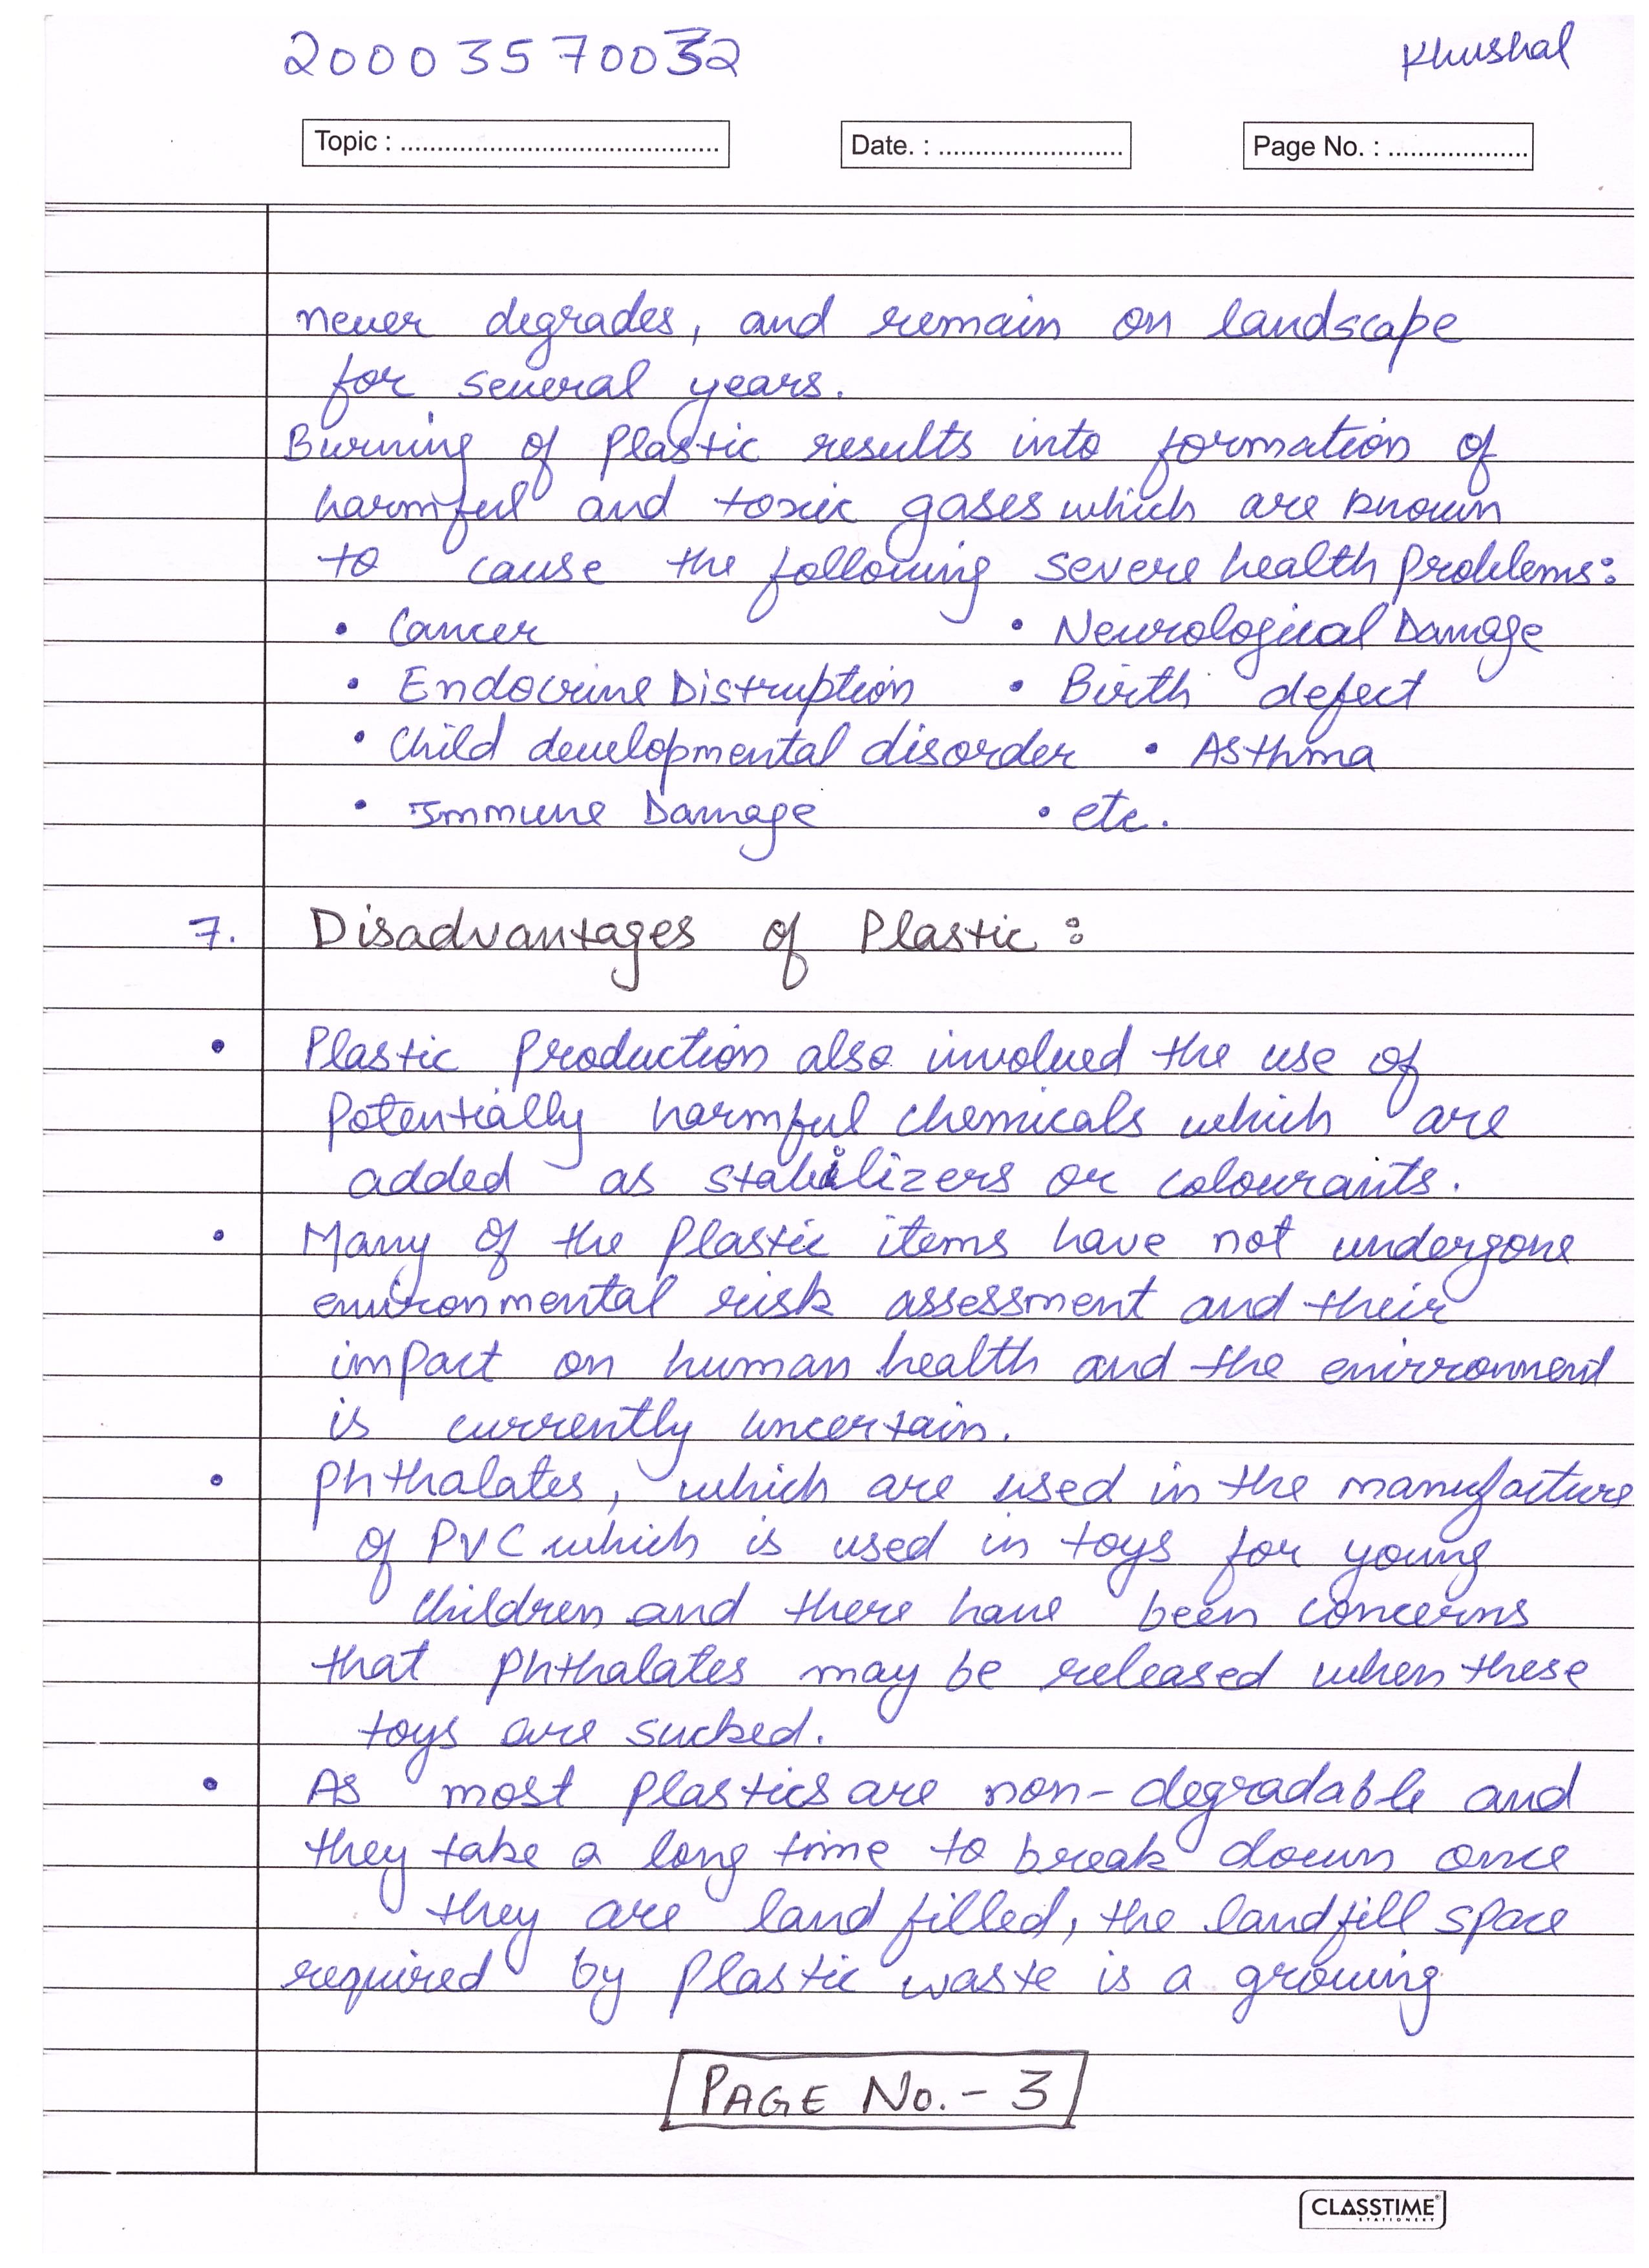 20003570032 Khushal
Topic : ........................................... Date. : ......................... Page No. : ...................
never degrades, and remain on landscape
for several years.
Burning of Plastic results into formation of
harmful and toxic gases which are known
to cause the following severe health Problems:
• Cancer • Neurological Damage
• Endocrine Distruption • Birth defect
• Child developmental disorder • Asthma
• Immune Damage • etc.
7. Disadvantages of Plastic :
• Plastic Production also involved the use of
Potentially harmful chemicals which are
added as stabilizers or colourants.
• Many of the Plastic items have not undergone
environmental risk assessment and their
impact on human health and the enirronment
is currently uncertain.
• Phthalates, which are used in the manufacture
of PVC which is used in toys for young
Children and there have been concerns
that Phthalates may be released when these
toys are sucked.
• As most Plastics are non-degradable and
they take a long time to break down once
they are land filled, the landfill space
required by Plastic waste is a growing
PAGE No. - 3
CLASSTIME
STATIONERY